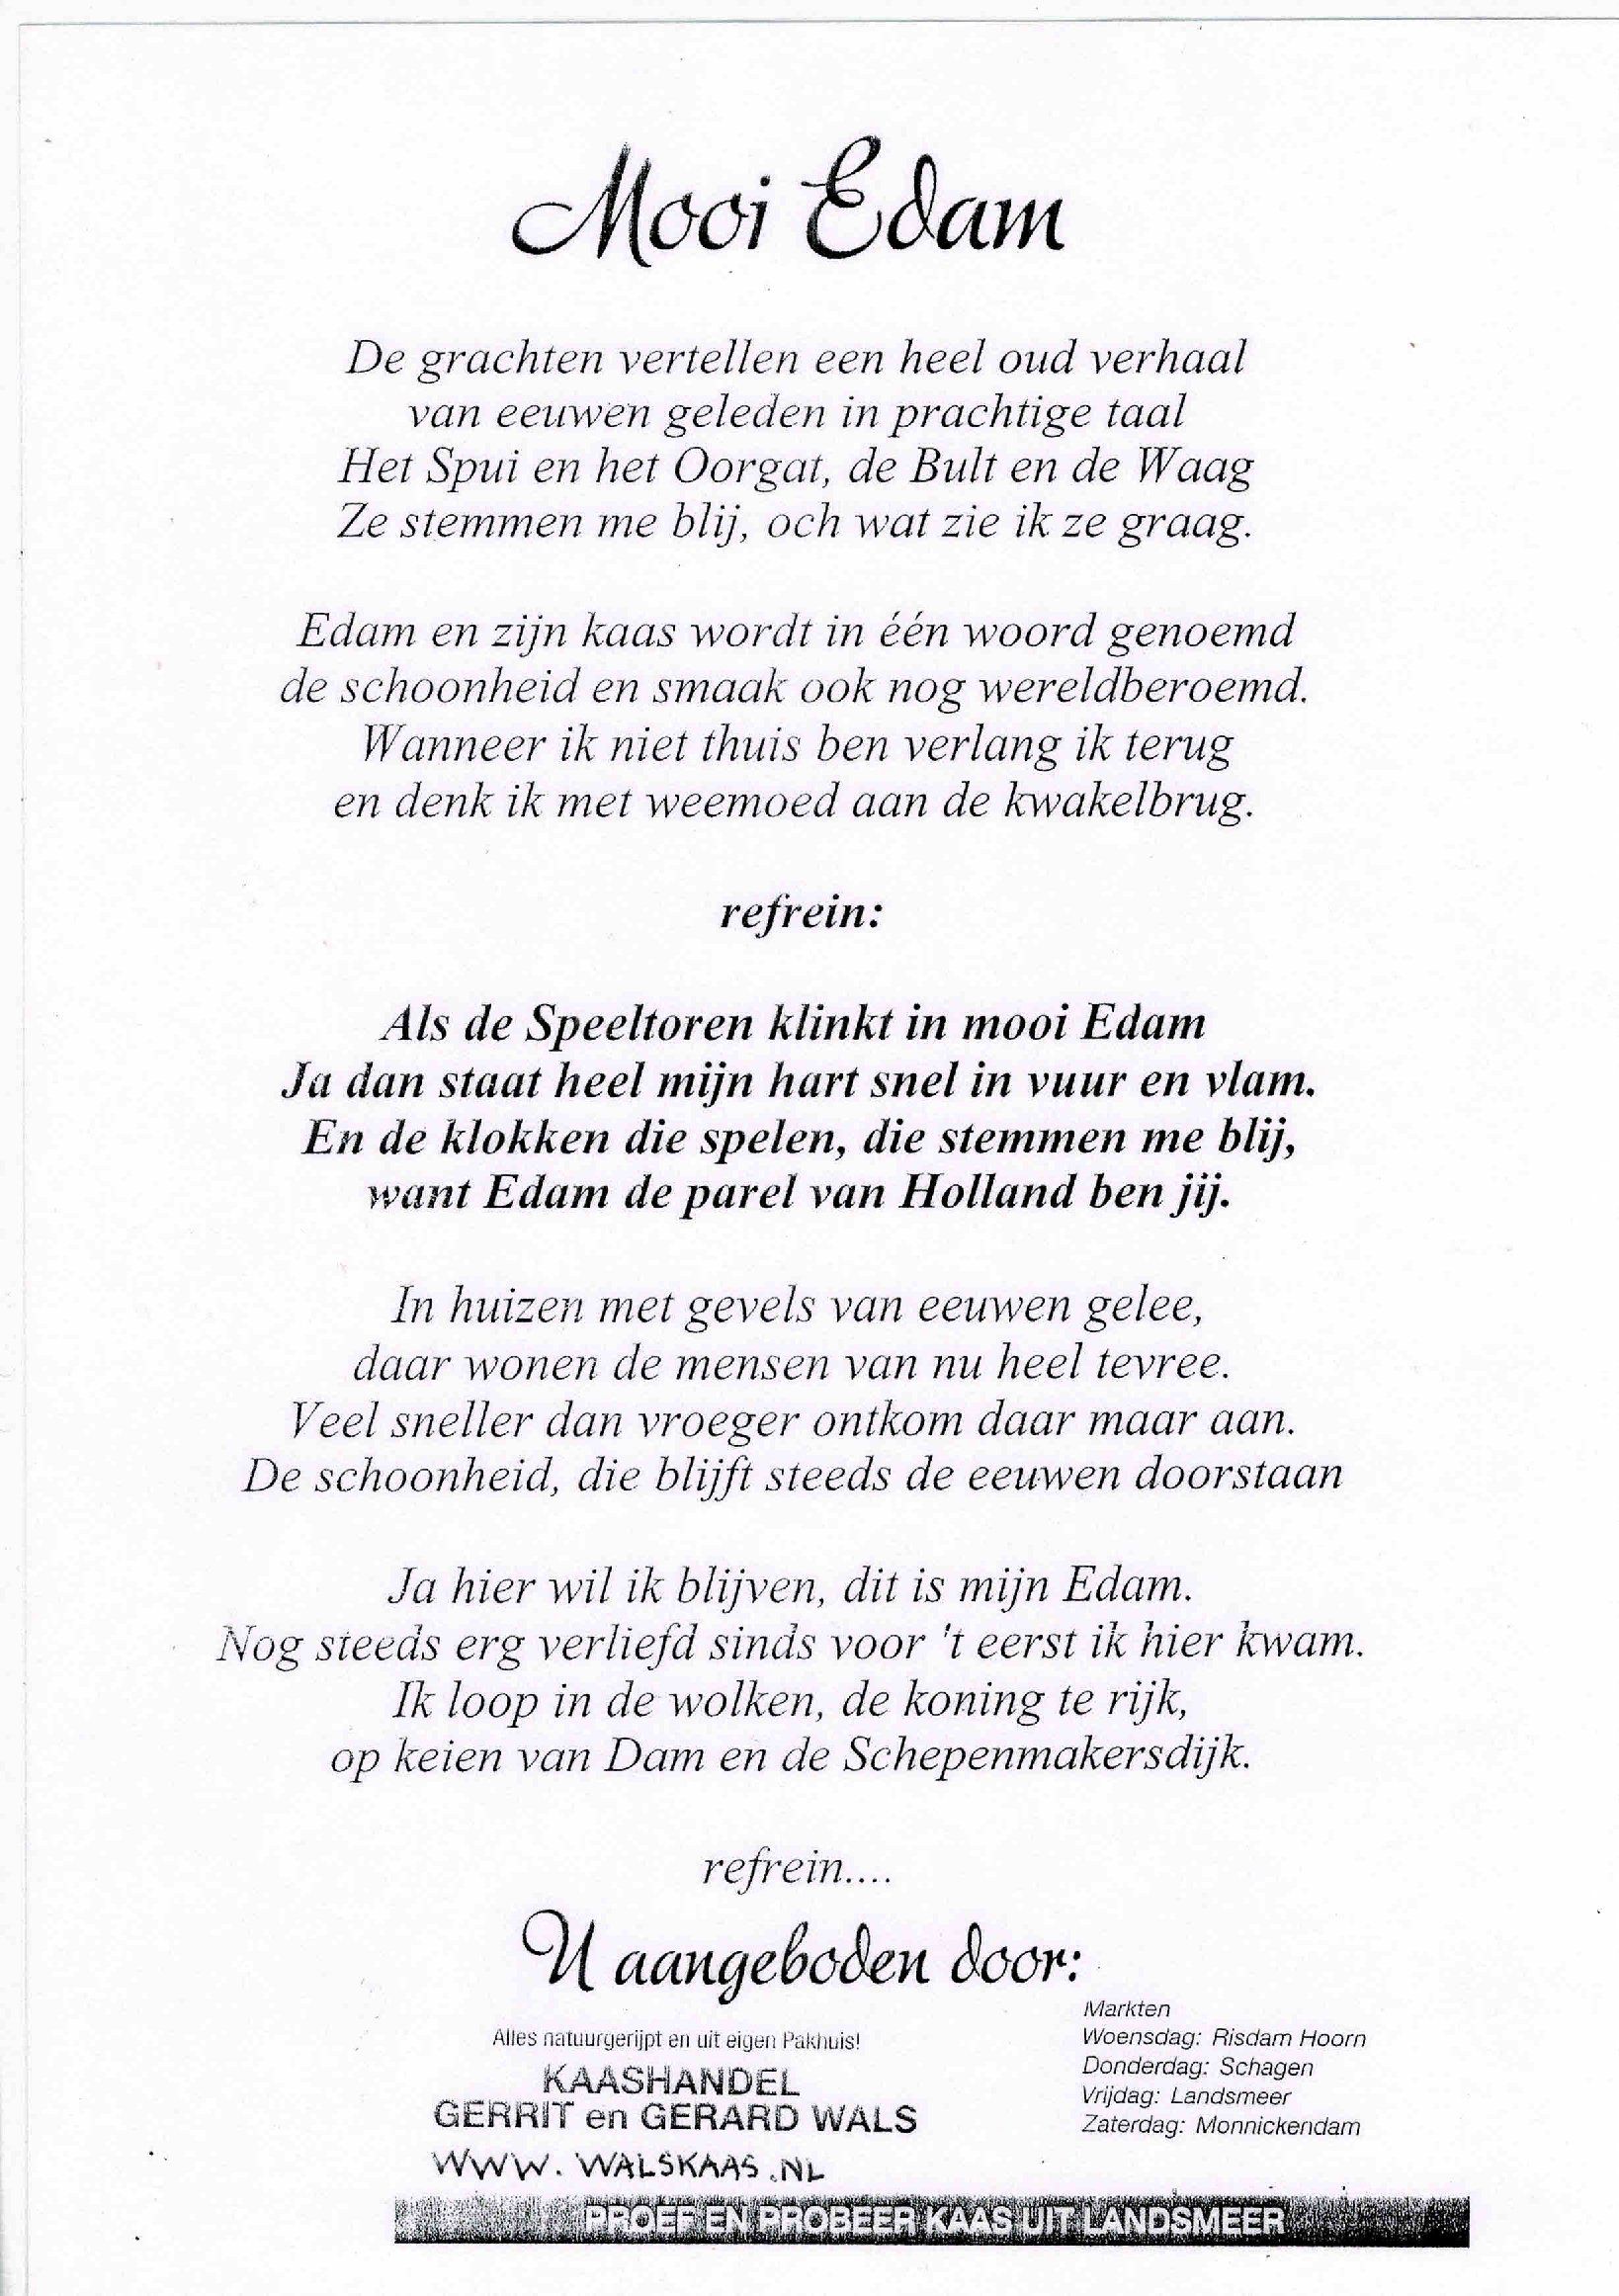 Mooi Edam
De grachten vertellen een heel oud verhaal
van eeuwen geleden in prachtige taal
Het Spui en het Oorgat, de Bult en de Waag
Ze stemmen me blij, och wat zie ik ze graag.
Edam en zijn kaas wordt in één woord genoemd
de schoonheid en smaak ook nog wereldberoemd.
Wanneer ik niet thuis ben verlang ik terug
en denk ik met weemoed aan de kwakelbrug.
refrein:
Als de Speeltoren klinkt in mooi Edam
Ja dan staat heel mijn hart snel in vuur en vlam.
En de klokken die spelen, die stemmen me blij,
want Edam de parel van Holland ben jij.
In huizen met gevels van eeuwen gelee,
daar wonen de mensen van nu heel tevree.
Veel sneller dan vroeger ontkom daar maar aan.
De schoonheid, die blijft steeds de eeuwen doorstaan
Ja hier wil ik blijven, dit is mijn Edam.
Nog steeds erg verliefd sinds voor 't eerst ik hier kwam.
Ik loop in de wolken, de koning te rijk,
op keien van Dam en de Schepenmakersdijk.
refrein....
U aangeboden door:
Alles natuurgerijpt en uit eigen Pakhuis!
KAASHANDEL
GERRIT en GERARD WALS
WWW. WALSKAAS.NL
Markten
Woensdag: Risdam Hoorn
Donderdag: Schagen
Vrijdag: Landsmeer
Zaterdag: Monnickendam
PROEF EN PROBEER KAAS UIT LANDSMEER